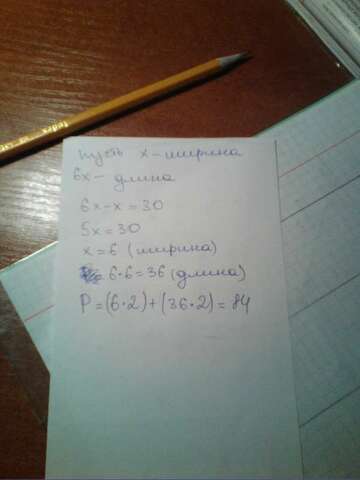 пусть х - ширина
6х - длина
6х - х = 30
5х = 30
х = 6 (ширина)
6·6 = 36 (длина)
P = (6·2) + (36·2) = 84